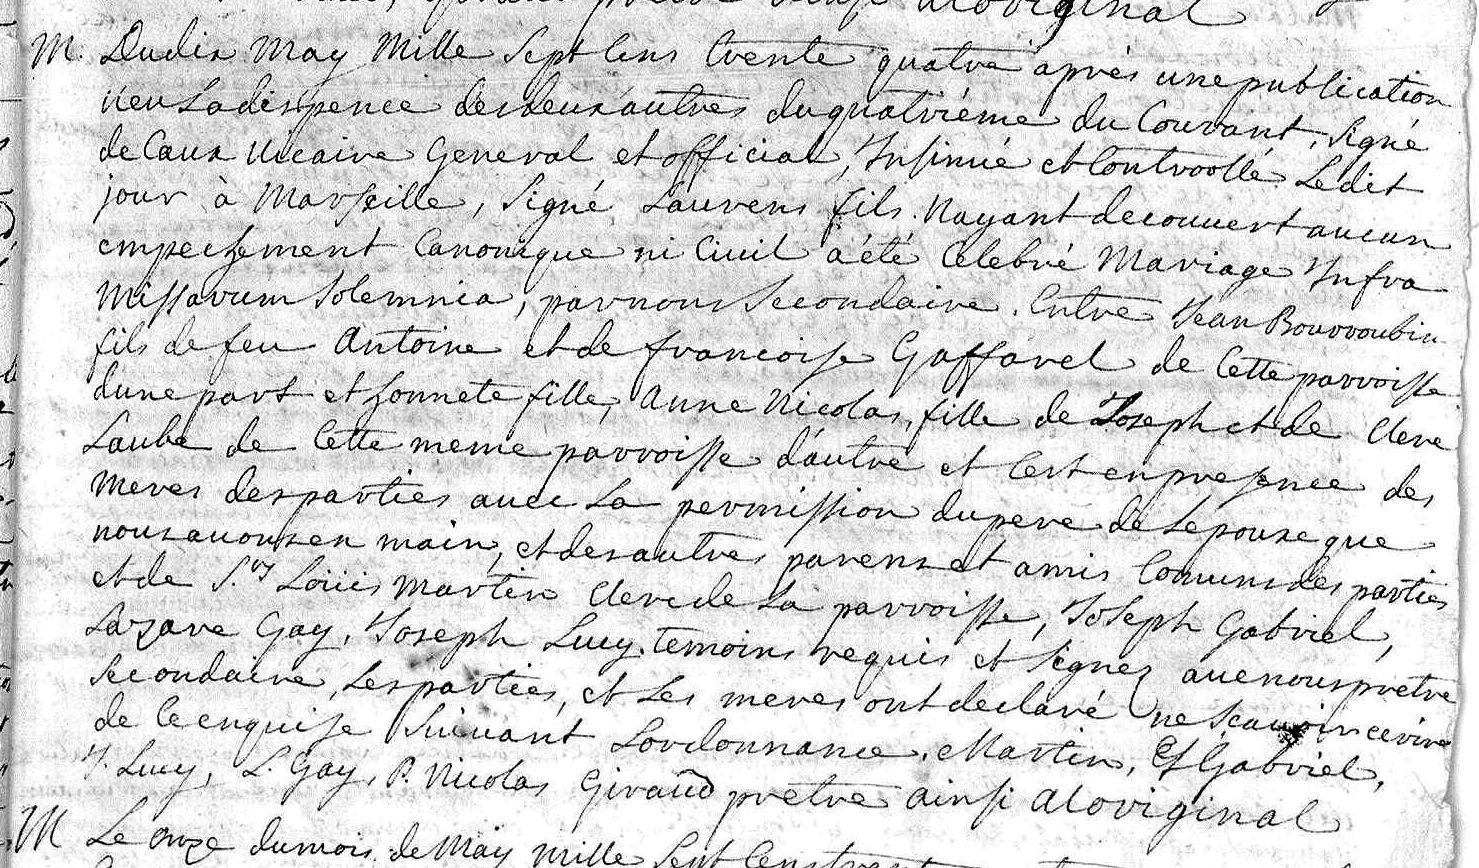 ainsi aloriginal
M. Dudix May Mille Sept Cens trente quatre après une publication
veu La dispence des deux autres du quatriéme du Courant, Signé
de Caux Vicaire General et official, Insinué et Controollé Ledit
jour à Marseille, Signé Laurens fils. Nayant decouvert aucun
empechement Canonique ni Civil a été Celebré Mariage Infra
Missarum Solemnia, par nous Secondaire. Entre Jean Bourroubin
fils de feu Antoine et de francoise Gaffarel de Cette parroisse
dune part et honnete fille, Anne Nicolas, fille de Joseph et de Clere
Laube de Cette meme parroisse d'autre et Cest en presence des
meres des parties avec La permission du pere de Lepouse que
nous avons en main, et des autres parens et amis Comuns des parties
et de S.rs Loüis Martin Clerc de La parroisse, Joseph Gabriel,
Lazare Gay, Joseph Lucy temoins requis et Signez avec nous pretre
Secondaire, Les parties, et Les meres ont declaré ne Scavoir ecrire
de Ce enquise Suivant Lordonnance. Martin, Gabriel,
J. Lucy, L. Gay, P. Nicolas Giraud pretre ainsi aloriginal
M Le onze du mois de May Mille Sept Cens trente